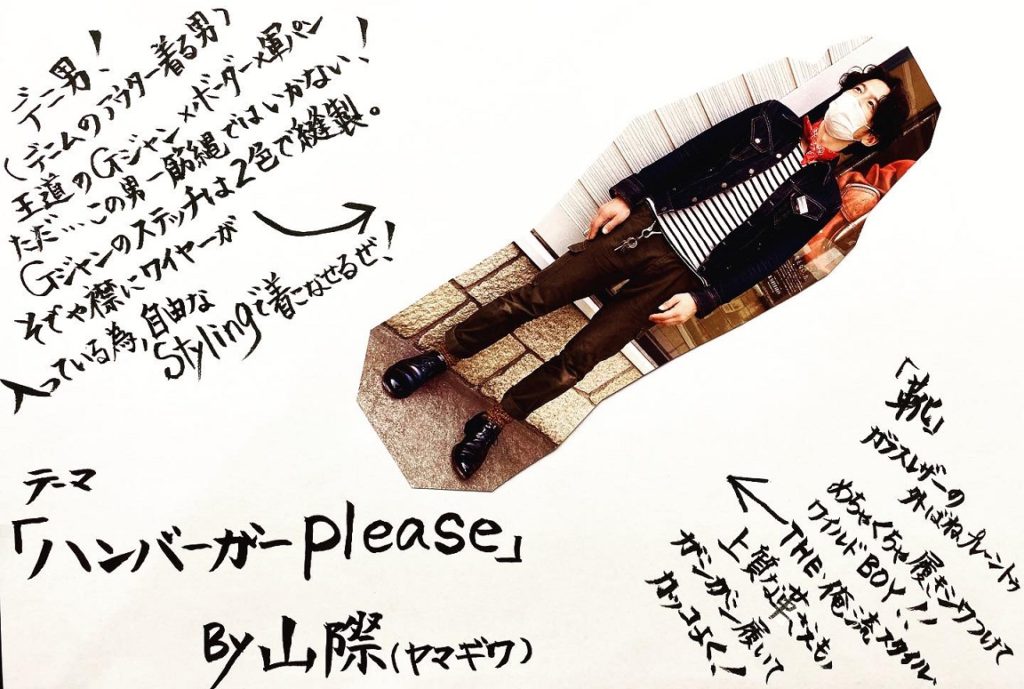 デニ男!
(デニムのアウター着る男)
王道のGジャン×ボーダー×軍パン
ただ…この男一筋縄ではいかない!
Gジャンのステッチは2色で縫製。
そでや襟にワイヤーが
入っている為、自由な
Stylingで着こなせるぜ!
テーマ
「ハンバーガーplease」
By山際(ヤマギワ)
「靴」
ガラスレザーの
外ばねプレーントゥ
めちゃくちゃ履きシワつけて
ワイルドBOY!!
THE俺流スタイル、
上質な革
ガシガシ履いて
カッコよく!